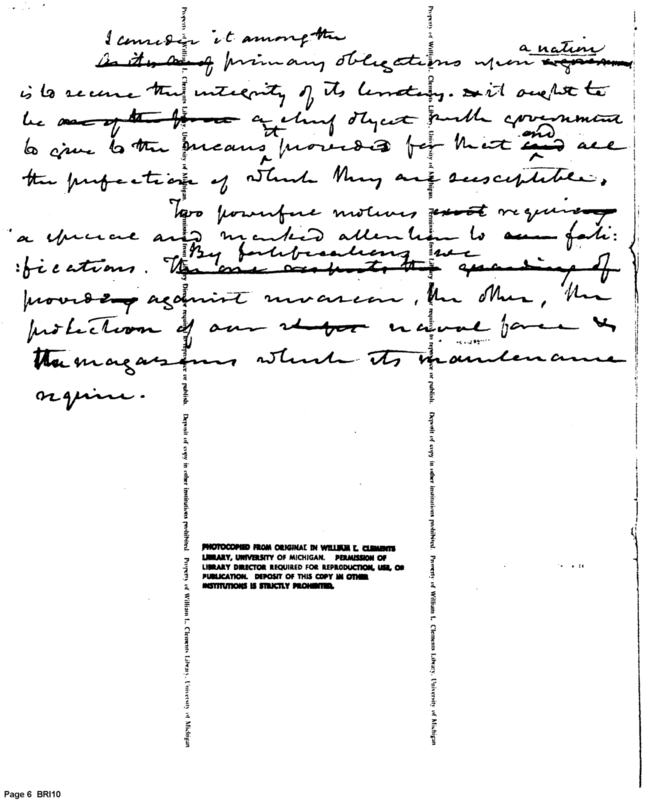 I consider it among the
As it is one of primary obligations upon a nation
is to secure the integrity of its territory. & it ought to
be one of the a chief object with government
to give to the means it provides for that end all
the perfection of which they are susceptible.
Two powerful motives require
a special and marked attention to our forti:
:fications. By fortifications we
The one respects the guarding of
provide against invasion, the other, the
protection of our naval force &
the magazines which its maintenance
require.
PHOTOCOPIED FROM ORIGINAL IN WILLIAM L. CLEMENTS
LIBRARY, UNIVERSITY OF MICHIGAN. PERMISSION OF
LIBRARY DIRECTOR REQUIRED FOR REPRODUCTION, USE, OR
PUBLICATION. DEPOSIT OF THIS COPY IN OTHER
INSTITUTIONS IS STRICTLY PROHIBITED.
Property of William L. Clements Library, University of Michigan. Permission from Library Director required to reproduce or publish. Deposit of copy in other institutions prohibited. Property of William L. Clements Library, University of Michigan
Property of William L. Clements Library, University of Michigan. Permission from Library Director required to reproduce or publish. Deposit of copy in other institutions prohibited. Property of William L. Clements Library, University of Michigan
Page 6 BRI10